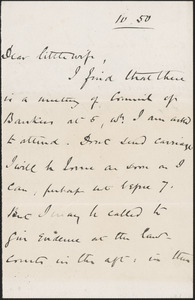 10 50
Dear little wife,
I find that there
is a meeting of Council of
Bankers at 5, wh. I am asked
to attend. Dont send carriage
I will be home as soon as I
can, perhaps not before 7.
But I may be called to
give Evidence at the Law
Courts in the aft: in